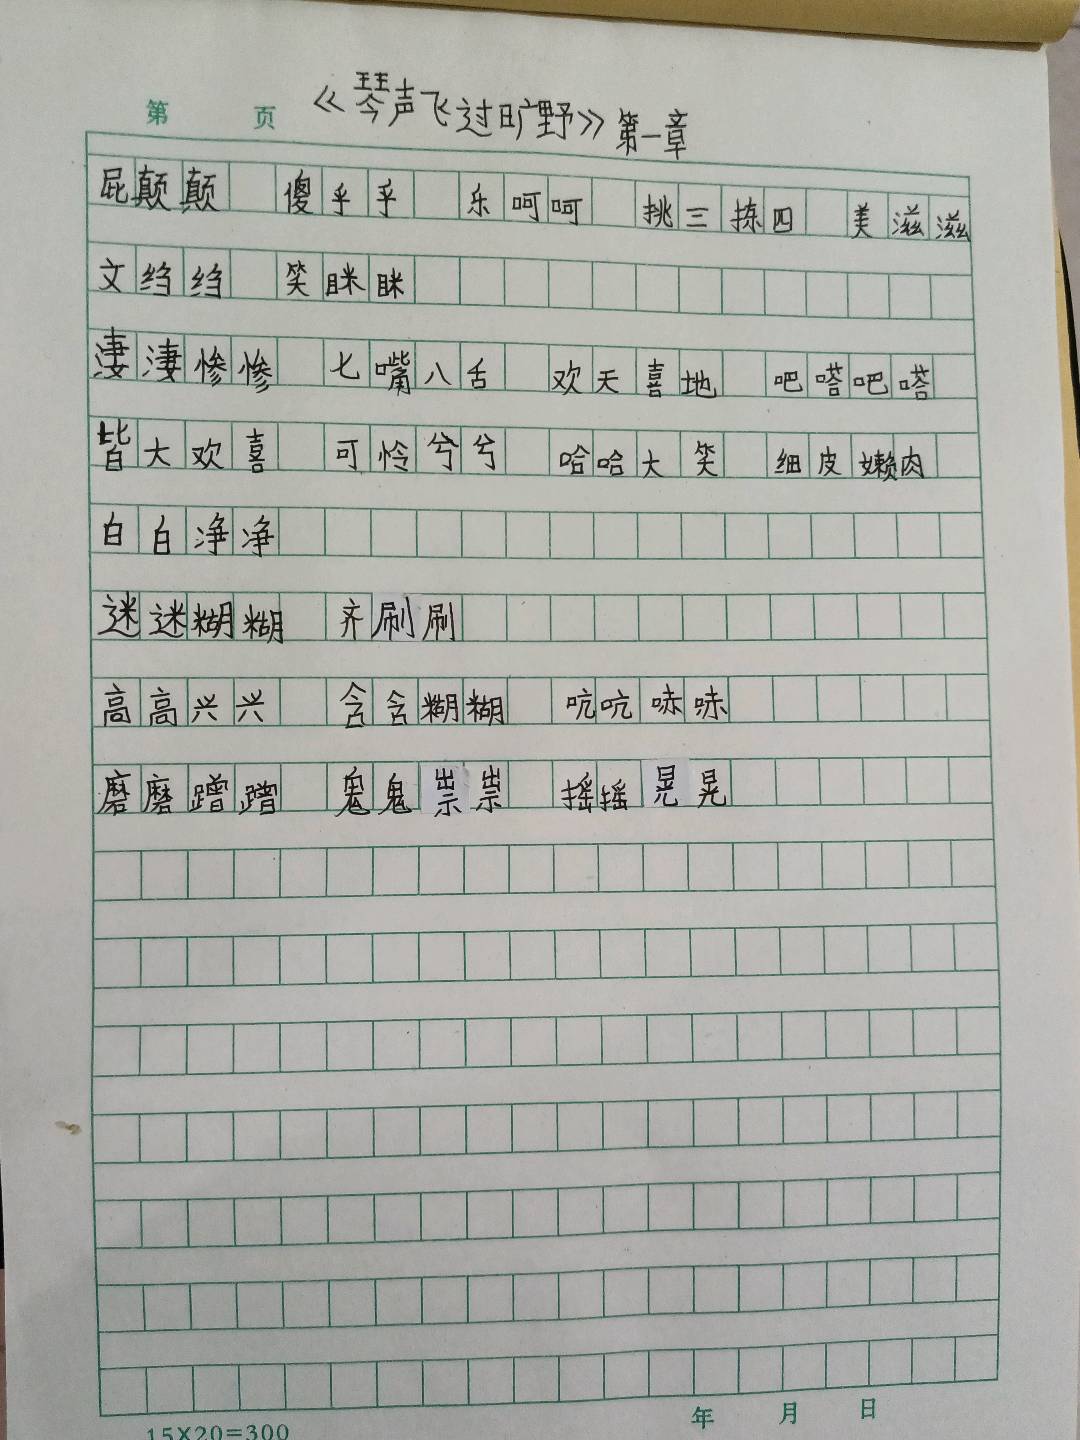 第 页 《琴声飞过旷野》第一章
屁颠颠 傻乎乎 乐呵呵 挑三拣四 美滋滋
文绉绉 笑眯眯
凄凄惨惨 七嘴八舌 欢天喜地 吧嗒吧嗒
皆大欢喜 可怜兮兮 哈哈大笑 细皮嫩肉
白白净净
迷迷糊糊 齐刷刷
高高兴兴 含含糊糊 吭吭哧哧
磨磨蹭蹭 鬼鬼祟祟 摇摇晃晃
15X20=300 年 月 日